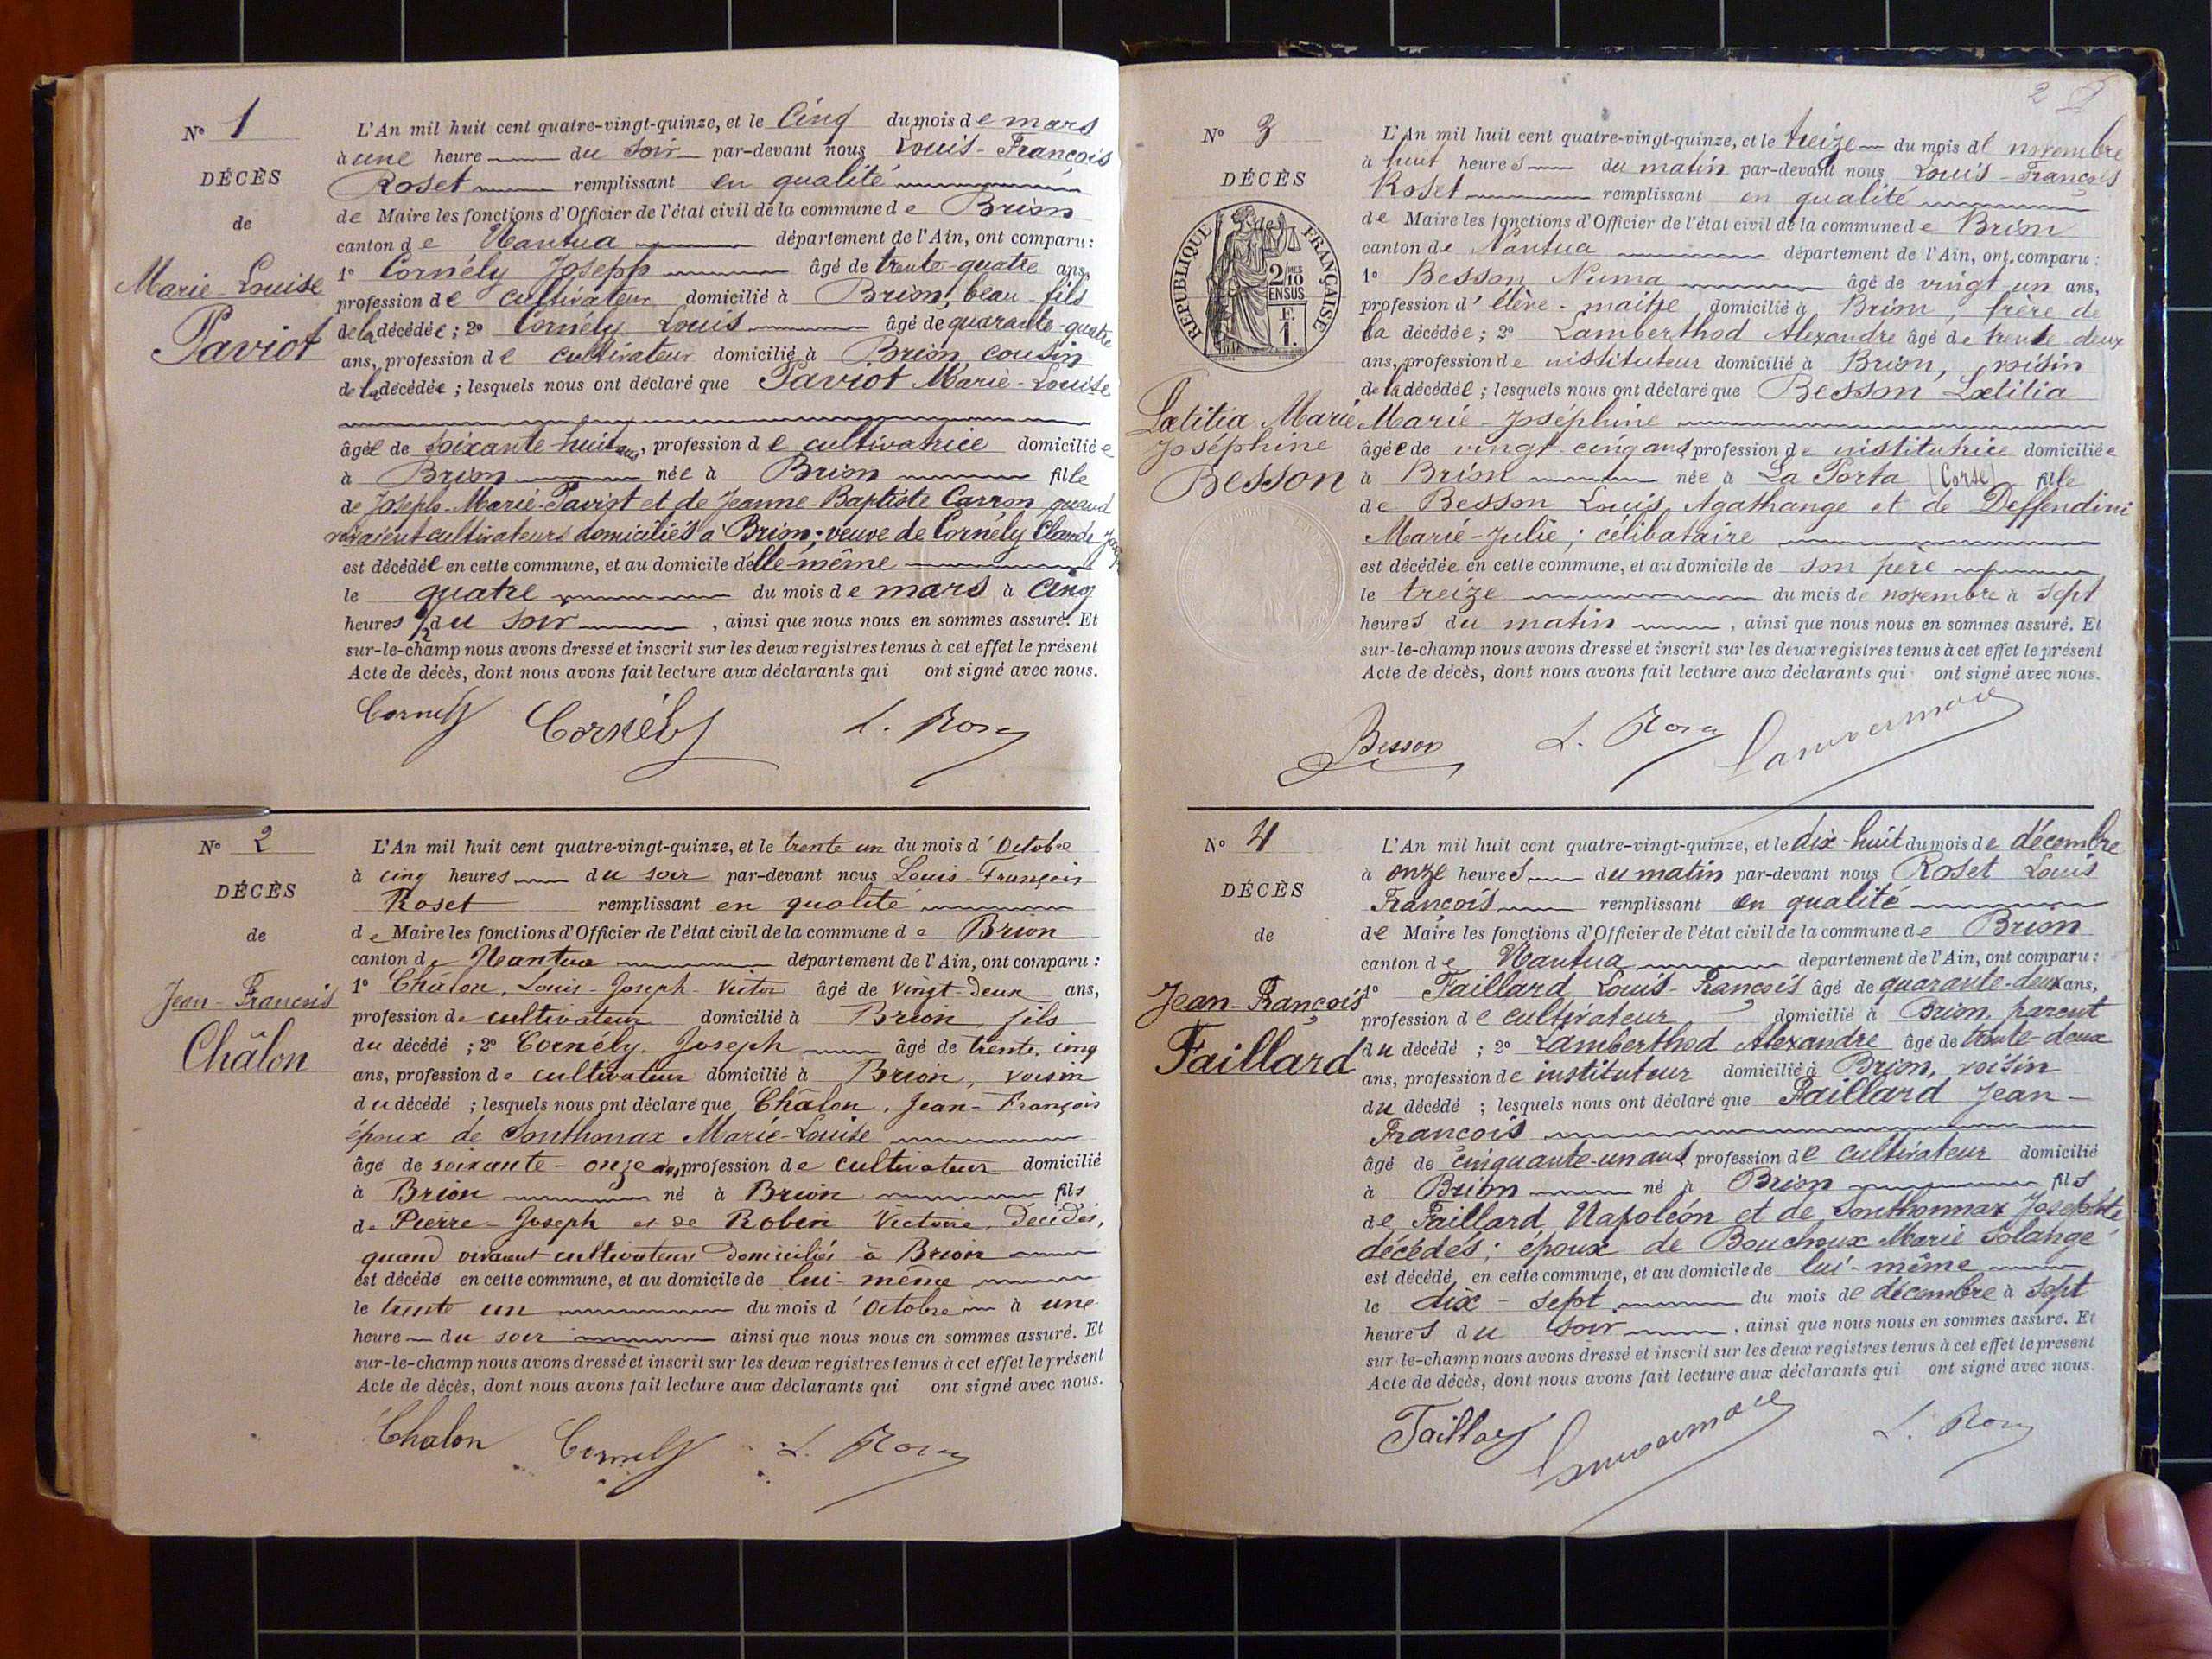 N° 1
DÉCÈS
de
Marie-Louise
Paviot
L'An mil huit cent quatre-vingt-quinze, et le Cinq du mois de mars
à une heure du soir par-devant nous Louis-François
Roset remplissant en qualité
de Maire les fonctions d'Officier de l'état civil de la commune de Brion
canton de Nantua département de l'Ain, ont comparu :
1° Cornély Joseph âgé de trente-quatre ans,
profession de cultivateur domicilié à Brion, beau-fils
de la décédée ; 2° Cornély Louis âgé de quarante-quatre
ans, profession de cultivateur domicilié à Brion, cousin
de la décédée ; lesquels nous ont déclaré que Paviot Marie-Louise
âgée de soixante-huit ans, profession de cultivatrice domiciliée
à Brion née à Brion fille
de Joseph-Marie Paviot et de Jeanne-Baptiste Carron, quand
vivaient cultivateurs domiciliés à Brion ; veuve de Cornély Claude
est décédée en cette commune, et au domicile d'elle-même
le quatre du mois de mars à cinq
heures 1/2 du soir , ainsi que nous nous en sommes assuré. Et
sur-le-champ nous avons dressé et inscrit sur les deux registres tenus à cet effet le présent
Acte de décès, dont nous avons fait lecture aux déclarants qui ont signé avec nous.
Cornély Cornély L. Roset
N° 2
DÉCÈS
de
Jean-François
Châlon
L'An mil huit cent quatre-vingt-quinze, et le trente un du mois d'Octobre
à cinq heures du soir par-devant nous Louis-François
Roset remplissant en qualité
de Maire les fonctions d'Officier de l'état civil de la commune de Brion
canton de Nantua département de l'Ain, ont comparu :
1° Châlon, Louis-Joseph-Victor âgé de vingt-deux ans,
profession de cultivateur domicilié à Brion, fils
du décédé ; 2° Cornély, Joseph âgé de trente-cinq
ans, profession de cultivateur domicilié à Brion, voisin
du décédé ; lesquels nous ont déclaré que Châlon, Jean-François
époux de Sonthonnax Marie-Louise
âgé de soixante-onze ans, profession de cultivateur domicilié
à Brion né à Brion fils
de Pierre-Joseph et de Robin Victoire, décédés,
quand vivaient cultivateurs domiciliés à Brion
est décédé en cette commune, et au domicile de lui-même
le trente un du mois d'Octobre à une
heure du soir ainsi que nous nous en sommes assuré. Et
sur-le-champ nous avons dressé et inscrit sur les deux registres tenus à cet effet le présent
Acte de décès, dont nous avons fait lecture aux déclarants qui ont signé avec nous.
Chalon Cornély L. Roset
2
N° 3
DÉCÈS
de
RÉPUBLIQUE FRANÇAISE
2/10 EN SUS
F.
1.
Lætitia Marie
Joséphine
Besson
L'An mil huit cent quatre-vingt-quinze, et le treize du mois de novembre
à huit heures du matin par-devant nous Louis-François
Roset remplissant en qualité
de Maire les fonctions d'Officier de l'état civil de la commune de Brion
canton de Nantua département de l'Ain, ont comparu :
1° Besson Numa âgé de vingt un ans,
profession d'élève-maître domicilié à Brion, frère de
la décédée ; 2° Lamberthod Alexandre âgé de trente-deux
ans, profession de instituteur domicilié à Brion, voisin
de la décédée ; lesquels nous ont déclaré que Besson Lætitia
Marie-Joséphine
âgée de vingt-cinq ans profession de institutrice domiciliée
à Brion née à La Porta (Corse) fille
de Besson Louis Agathange et de Deffendini
Marie-Julie ; célibataire
est décédée en cette commune, et au domicile de son père
le treize du mois de novembre à sept
heures du matin , ainsi que nous nous en sommes assuré. Et
sur-le-champ nous avons dressé et inscrit sur les deux registres tenus à cet effet le présent
Acte de décès, dont nous avons fait lecture aux déclarants qui ont signé avec nous.
Besson L. Roset
N° 4
DÉCÈS
de
Jean-François
Faillard
L'An mil huit cent quatre-vingt-quinze, et le dix-huit du mois de décembre
à onze heures du matin par-devant nous Roset Louis
François remplissant en qualité
de Maire les fonctions d'Officier de l'état civil de la commune de Brion
canton de Nantua département de l'Ain, ont comparu :
1° Faillard Louis-François âgé de quarante-deux ans,
profession de cultivateur domicilié à Brion, parent
du décédé ; 2° Lamberthod Alexandre âgé de trente-deux
ans, profession de instituteur domicilié à Brion, voisin
du décédé ; lesquels nous ont déclaré que Faillard Jean-
François
âgé de cinquante-un ans profession de cultivateur domicilié
à Brion né à Brion fils
de Faillard Napoléon et de Sonthonnax Josephte
décédés ; époux de Bouchoux Marie Solange
est décédé en cette commune, et au domicile de lui-même
le dix-sept du mois de décembre à sept
heures du soir , ainsi que nous nous en sommes assuré. Et
sur-le-champ nous avons dressé et inscrit sur les deux registres tenus à cet effet le présent
Acte de décès, dont nous avons fait lecture aux déclarants qui ont signé avec nous.
Faillard L. Roset